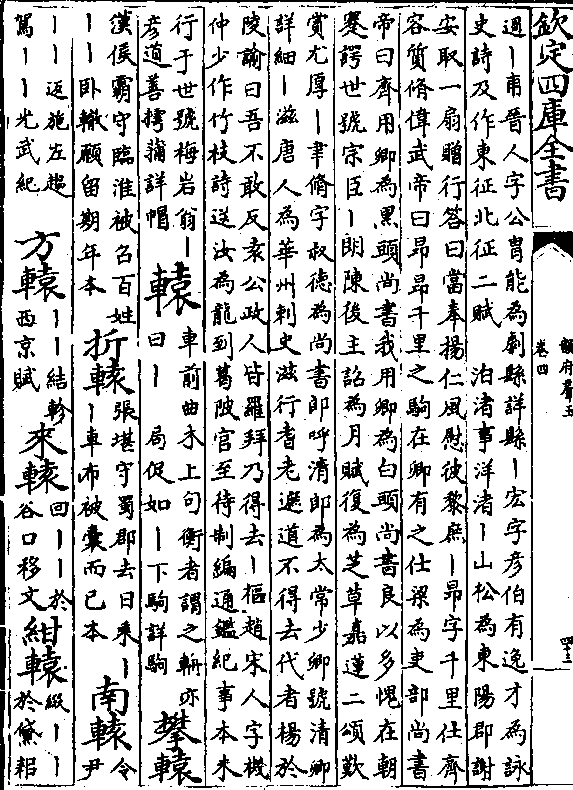 欽定四庫全書
韻府羣玉
卷四
四十三
過丨甫晉人字公胄能為劇縣詳縣丨宏字彦伯有逸才為詠
史詩及作東征北征二賦 泊渚事洋渚丨山松為東陽郡謝
安取一扇贈行答曰當奉揚仁風慰彼黎庶丨昻字千里仕齊
容質脩偉武帝曰昻昻千里之駒在卿有之仕梁為吏部尚書
帝曰齊用卿為黑頭尚書我用卿為白頭尚書良以多愧在朝
蹇諤世號宗臣丨朗陳後主詔為月賦復為芝草嘉蓮二頌歎
賞尤厚丨聿脩字叔德為尚書郎呼清郎為太常少卿號清卿
詳細丨滋唐人為華州刺史滋行耆老遮道不得去代者楊於
陵諭曰吾不敢反袁公政人皆羅拜乃得去丨樞趙宋人字機
仲少作竹枝詩送汝為龍到葛陂官至待制編通鑑紀事本末
行于世號梅岩翁丨
彦道善摴蒱詳帽
轅
車前曲木上句衡者謂之輈亦
曰丨 局促如丨下駒詳駒
攀轅
漢侯霸守臨淮被召百姓
丨丨卧轍願留期年本
折轅
張堪守蜀郡去日乘丨
丨車布被囊而已本
南轅
令尹
丨丨返斾左趙
駕丨丨光武紀
方轅
丨丨結軫
西京賦
來轅
回丨丨於
谷口移文
紺轅
綴丨丨
於黛耜